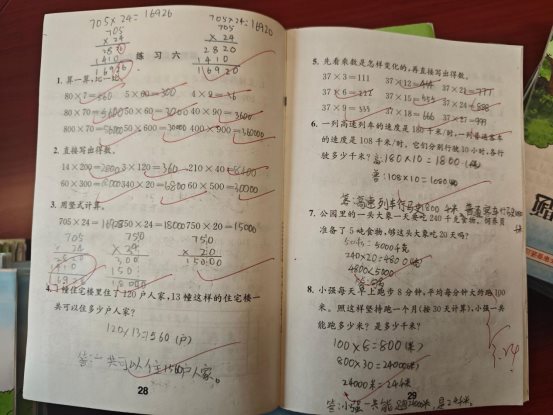 705×24=16926
705
× 24
1410
16926
705×24=16920
705
× 24
2820
1410
16920
练 习 六
1. 算一算,比一比。
80×7=560 5×60=300 4×9=36
80×70=5600 50×60=3000 40×90=3600
800×70=56000 50×600=30000 400×900=360000
2. 直接写出得数。
14×200=2800 3×120=360 210×40=8400
60×300=18000 340×20=6800 60×500=30000
3. 用竖式计算。
705×24= 750×24=18000 750×20=15000
705
× 24
1410
16920
750
× 24
300
150
18000
750
× 20
15000
4. 1幢住宅楼里住了120户人家,13幢这样的住宅楼一
共可以住多少户人家?
120×13=1560(户)
答:一共可以住1560户人家。
28
5. 先看乘数是怎样变化的,再直接写出得数。
37×3=111 37×12=444 37×21=777
37×6=222 37×15=555 37×24=888
37×9=333 37×18=666 37×27=999
6. 一列高速列车的速度是180千米/时,一列普通客车
的速度是108千米/时。它们分别行驶10小时,各行
驶多少千米?
高:180×10=1800(千米)
普:108×10=1080(千米)
答:高速列车行驶1800千米,普通客车行驶1080
7. 公园里的一头大象一天要吃240千克食物。饲养员
准备了5吨食物,够这头大象吃20天吗?
5吨=5000千克
240×20=4800(千克)
4800<5000
8. 小强每天早上跑步8分钟,平均每分钟大约跑100
米。照这样坚持跑一个月(按30天计算),小强一共
能跑多少米?是多少千米?
100×8=800(米)
800×30=24000(米)
24000米=24千米
答:小强一共能跑24000米,是24千米。
29